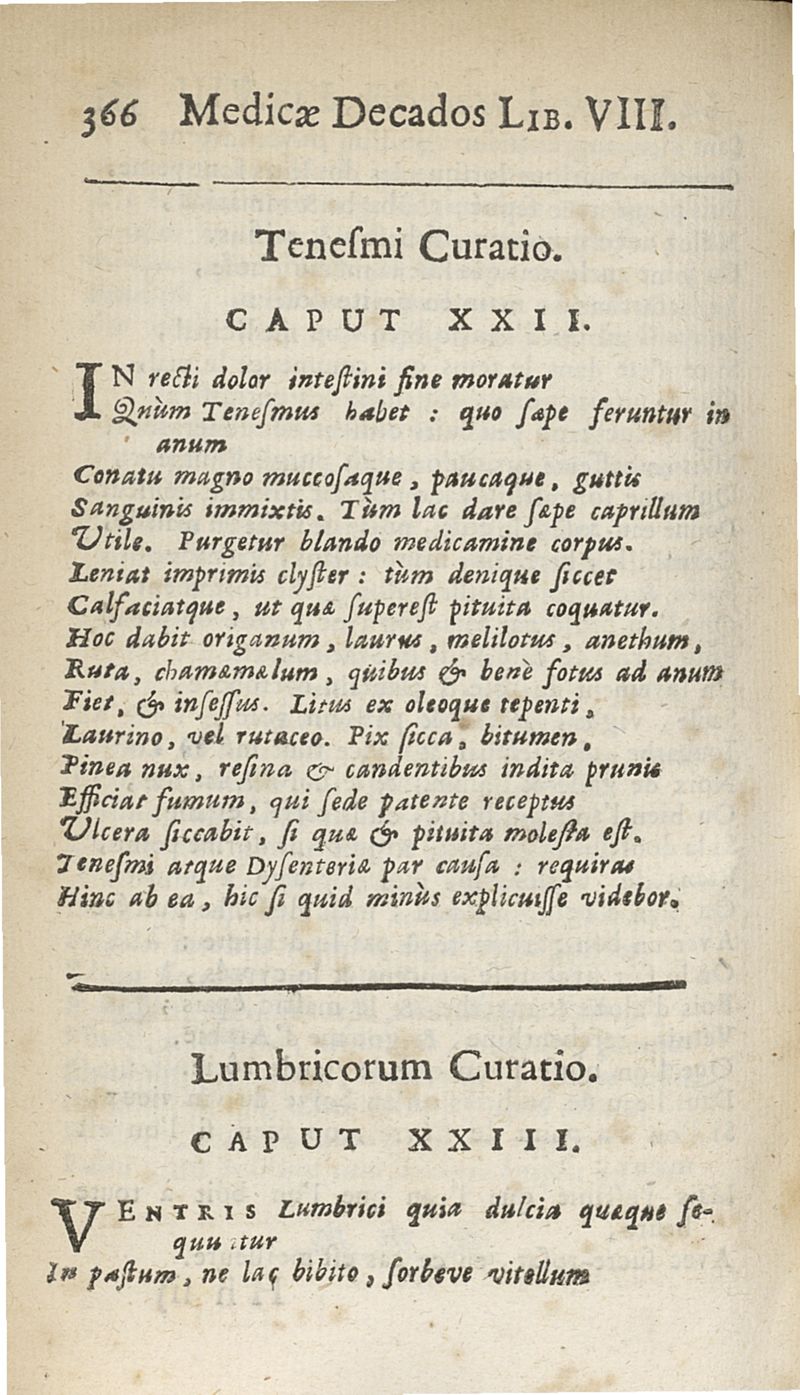 366 Medicæ Decados LIB. VIII.
Teneſmi Curatio.
CAPUT XXII.
IN recti dolor inteſtini fine moratur
Quùm Teneſmus habet : quo ſæpe feruntur in
anum
Conatu magno muccoſaque , paucaque, guttis
Sanguinis immixtis. Tùm lac dare ſæpe caprillum
Utile. Purgetur blando medicamine corpus.
Leniat imprimis clyſter : tùm denique ſiccet
Calfaciatque , ut quæ ſupereſt pituita coquatur.
Hoc dabit origanum , laurus , melilotus , anethum,
Ruta, chamæmælum , quibus & benè fotus ad anum
Fiet, & inſeſſus. Litus ex oleoque tepenti,
Laurino, vel rutaceo. Pix ſicca, bitumen,
Pinea nux, reſina & candentibus indita prunis
Efficiat fumum, qui ſede patente receptus
Ulcera ſiccabit, ſi quæ & pituita moleſta eſt.
Teneſmi atque Dyſenteriæ par cauſa : requiras
Hinc ab ea , hic ſi quid minùs explicuiſſe videbor.
Lumbricorum Curatio.
CAPUT XXIII.
VENTRIS Lumbrici quia dulcia quæque ſe-
quu tur
In paſtum, ne lac bibito, ſorbeve vitellum